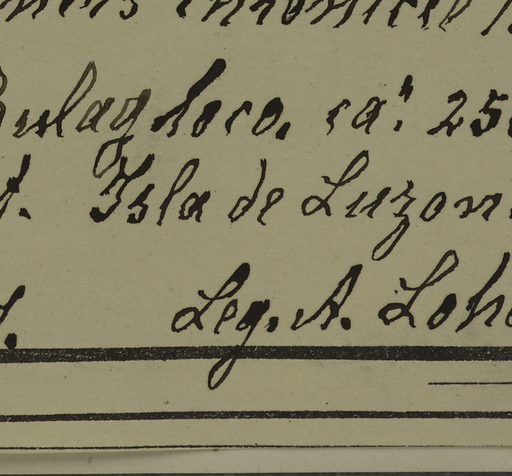 Bulaghoco, ca. 25
Isla de Luzon
Leg. A. Loh